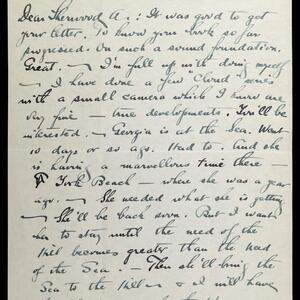 Dear Sherwood A.: It was good to get
your letter. To know your book so far
progressed. On such a sound foundation.
Great. — I'm full up with doing myself
— I have done a few "Cloud" series
with a small camera which I know are
very fine — true developments. You'll be
interested. — Georgia is at the Sea. Went
10 days or so ago. Had to. And she
is having a marvellous time there —
York Beach — where she was a year
ago. — She needed what she is getting
— She'll be back soon. But I want
her to stay until the need of the
Hill becomes greater than the need
of the Sea. — Then she'll bring the
Sea to the Hill — & I will have